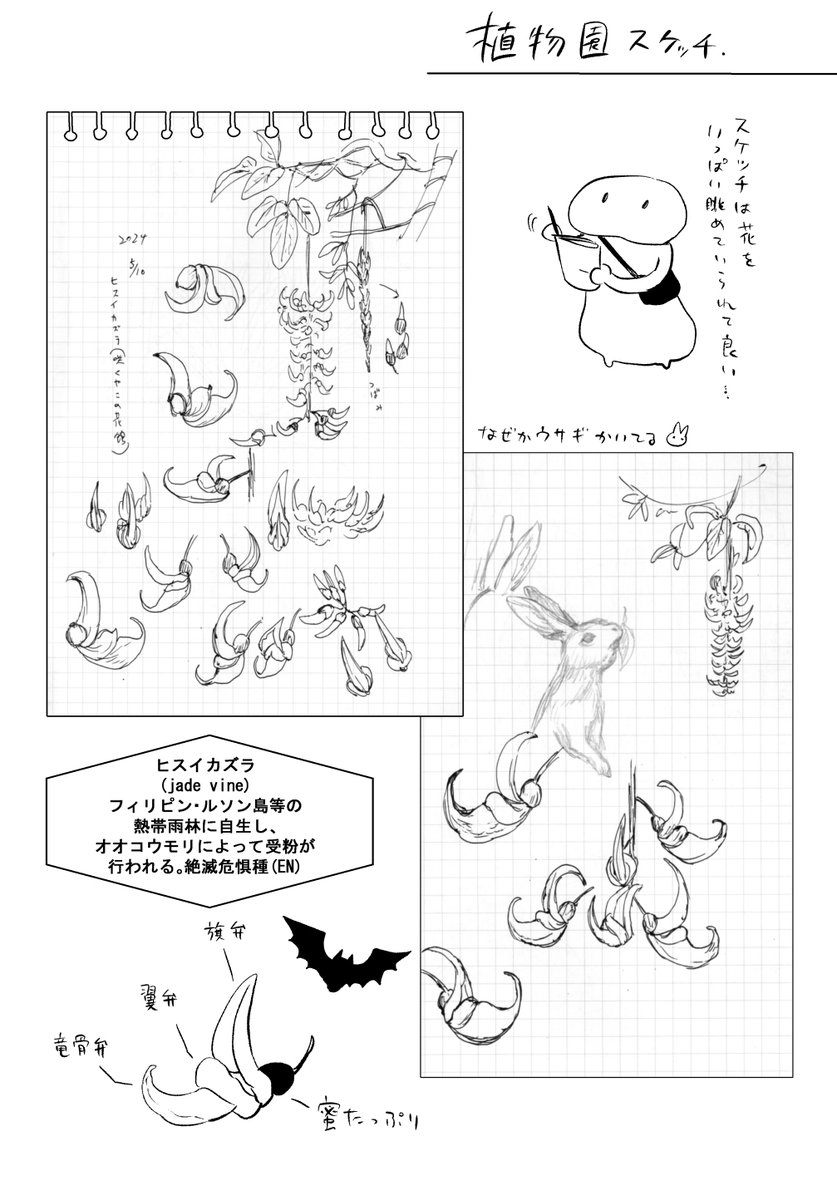 植物園スケッチ.
スケッチは花を
いっぱい眺めていられて良い…
2024
5/10
ヒスイカズラ(咲くやこの花館)
つぼみ
なぜかウサギかいてる
ヒスイカズラ
(jade vine)
フィリピン・ルソン島等の
熱帯雨林に自生し、
オオコウモリによって受粉が
行われる。絶滅危惧種(EN)
旗弁
翼弁
竜骨弁
蜜たっぷり